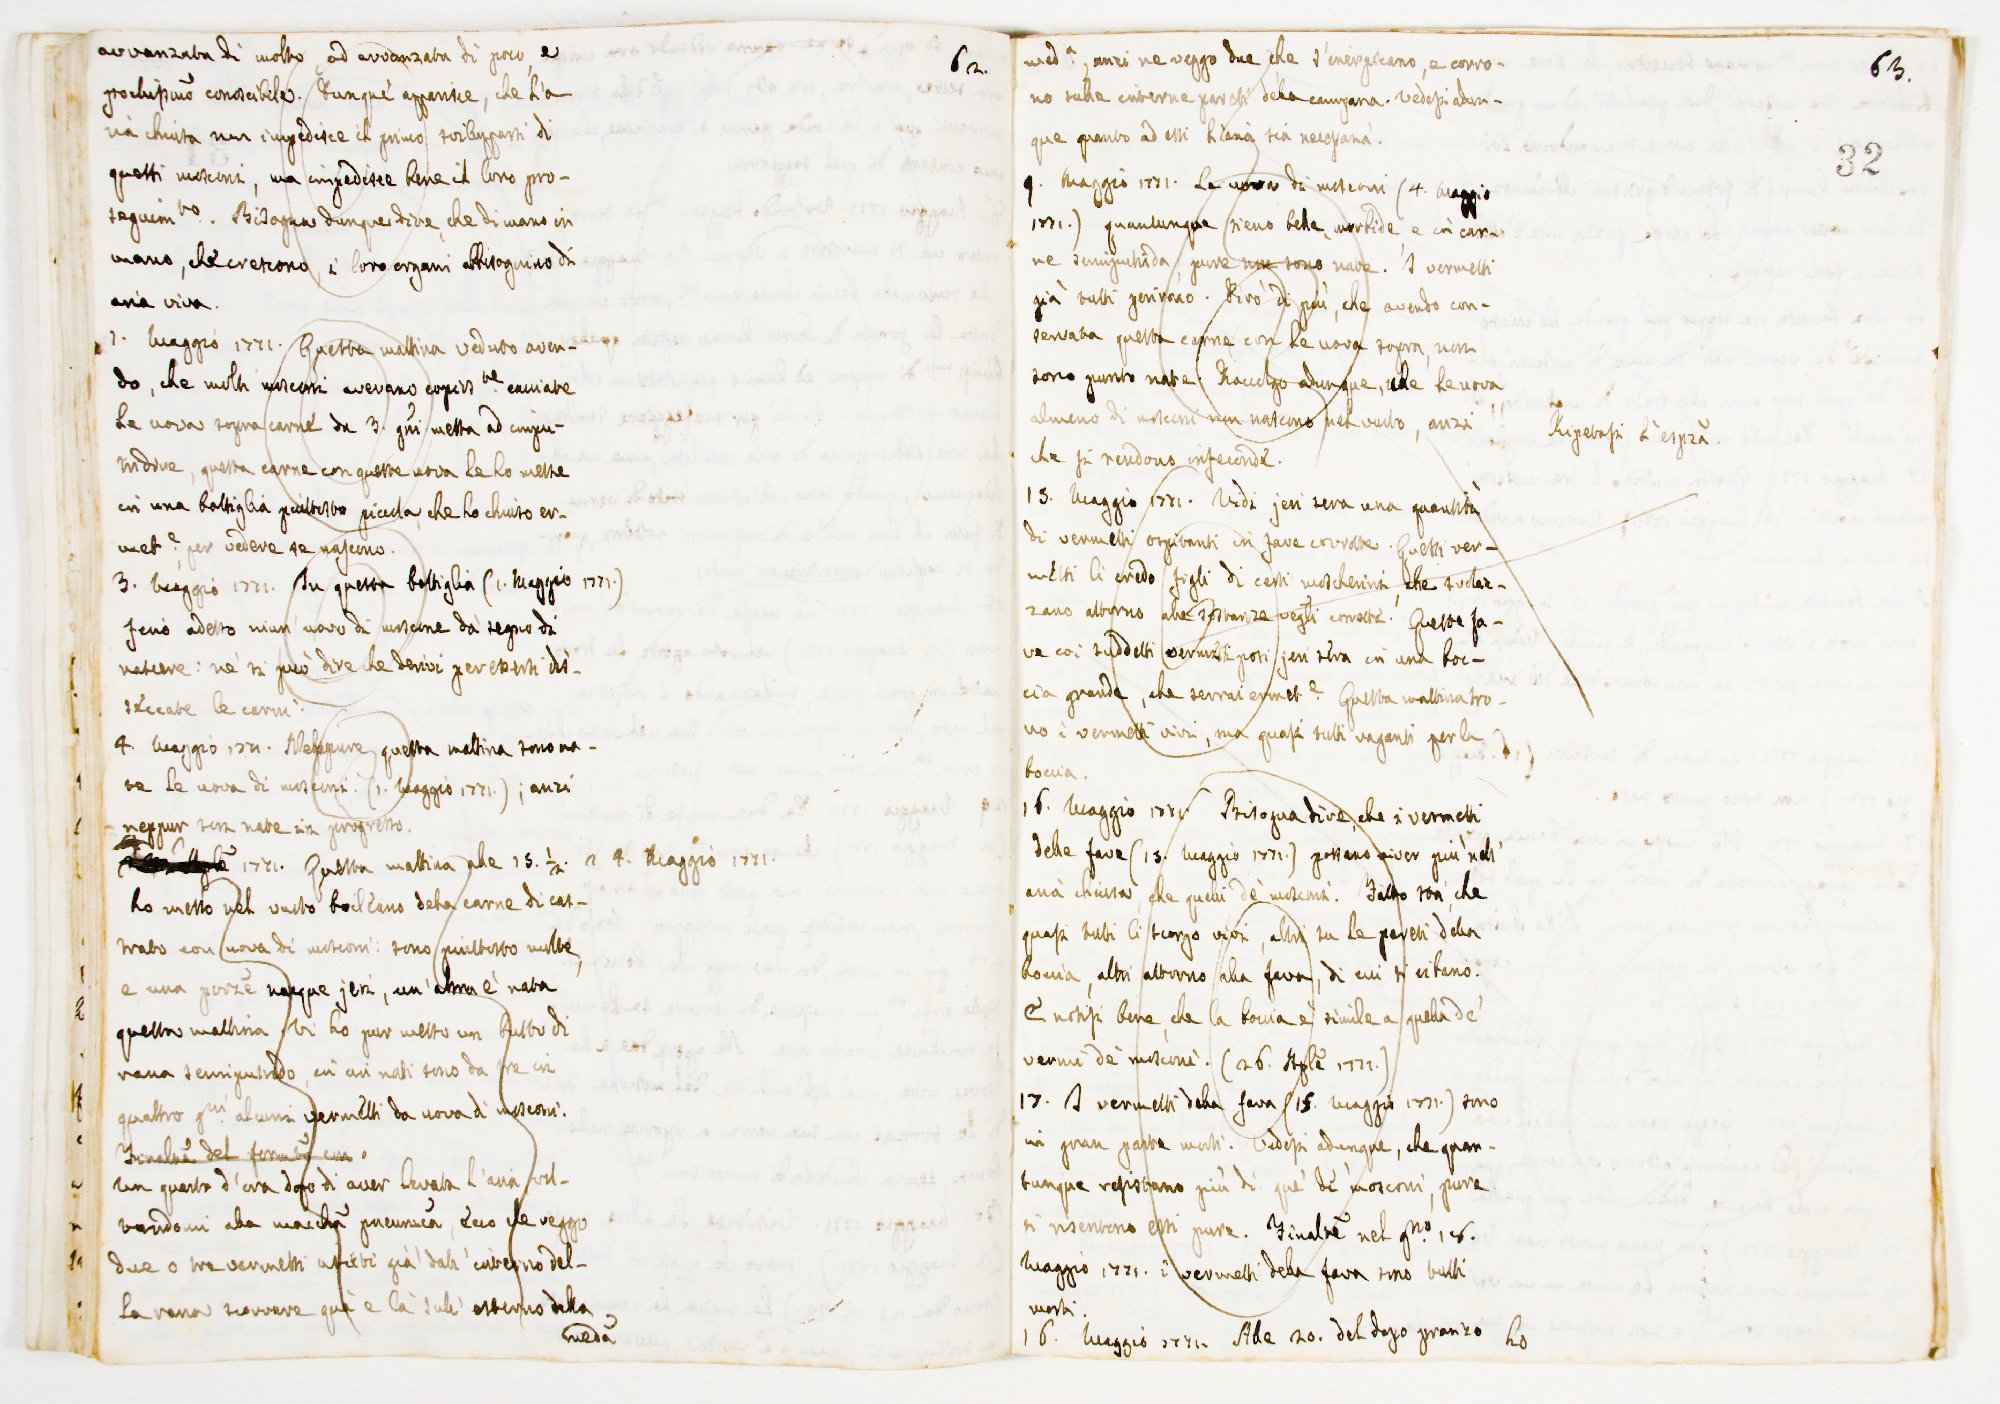 62.
avvanzata di molto, ad avvanzata di poco, e
pochissimo conoscibile. Dunque apparisce, che l'a-
ria chiusa non impedisce il primo svilupparsi di
questi mosconi, ma impedisce bene il loro pro-
seguim.to. Bisogna dunque dire, che di mano in
mano, che crescono, i loro organi abbisognino di
aria viva.
1. Maggio 1771. Questa mattina veduto aven-
do, che molti mosconi avevano copios.te cacciate
le uova sopra carne da 3. gni messa ad impu-
tridire, questa carne con queste uova le ho messe
in una bottiglia piuttosto picciola, che ho chiuso er-
met.e per vedere se nascono.
3. Maggio 1771. In questa bottiglia (1. Maggio 1771.)
fino adesso niun' uovo di moscone dà segno di
nascere: nè si può dire che derivi per essersi dis-
seccate le carni.
4. Maggio 1771. Neppure questa mattina sono na-
te le uova di mosconi. (1. Maggio 1771.); anzi
neppur son nate in progresso.
1771. Questa mattina alle 15. ½. 4. Maggio 1771.
ho messo nel vuoto boileano della carne di cas-
trato con uova di mosconi: sono piuttosto molte,
e una porzē nacque jeri, un' altra è nata
questa mattina. Vi ho pur messo un busto di
rana semiputrido, in cui nati sono da tre in
quattro gni alcuni vermetti da uova di mosconi.
un quarto d'ora dopo di aver levata l'aria ser-
vendomi alla macchā pneumcā, ecco che veggo
due o tre vermetti usciti già dall' interno del-
la rana scorrere quà e là sull' esterno della
medā
63.
32
med.a, anzi ne veggo due che s'inerpicano, e corro-
no sulle interne pareti della campana. Vedesi adun-
que quanto ad essi l'aria sia necessaria.
9. Maggio 1771. Le uova di mosconi (4. Maggio
1771.) quantunque sieno belle, morbide, e in car-
ne semiputrida, pure non sono nate. I vermetti
già tutti perirono. Dirò di più, che avendo con-
servata questa carne con le uova sopra, non
sono punto nate. Raccolgo adunque, che le uova
almeno di mosconi non nascono nel vuoto, anzi
che si rendono infeconde.
Ripetasi l'esprā.
15. Maggio 1771. Vidi jeri sera una quantità
di vermetti ospitanti in fave corrotte. Questi ver-
metti li credo figli di certi moscherini, che svolaz-
zano attorno alle sostanze vegli corrotte. Queste fa-
ve coi suddetti vermetti posi jeri sera in una boc-
cia grande, che serrai ermet.e Questa mattina tro-
vo i vermetti vivi, ma quasi tutti vaganti per la
boccia.
16. Maggio 1771. Bisogna dire, che i vermetti
delle fave (15. Maggio 1771.) possano viver più nell'
aria chiusa, che quelli de' mosconi. Fatto sta, che
quasi tutti li scorgo vivi, altri su le pareti della
boccia, altri attorno alla fava, di cui si cibano.
E notisi bene, che la boccia è simile a quella de'
vermi de' mosconi. (26. Aplē 1771.)
17. I vermetti della fava (15. Maggio 1771.) sono
in gran parte morti. Vedesi adunque, che quan-
tunque resistano più di que' de' mosconi, pure
si risentono essi pure. Finaltē nel gno. 18.
Maggio 1771. i vermetti della fava sono tutti
morti.
16. Maggio 1771. Alle 20. del dopo pranzo ho